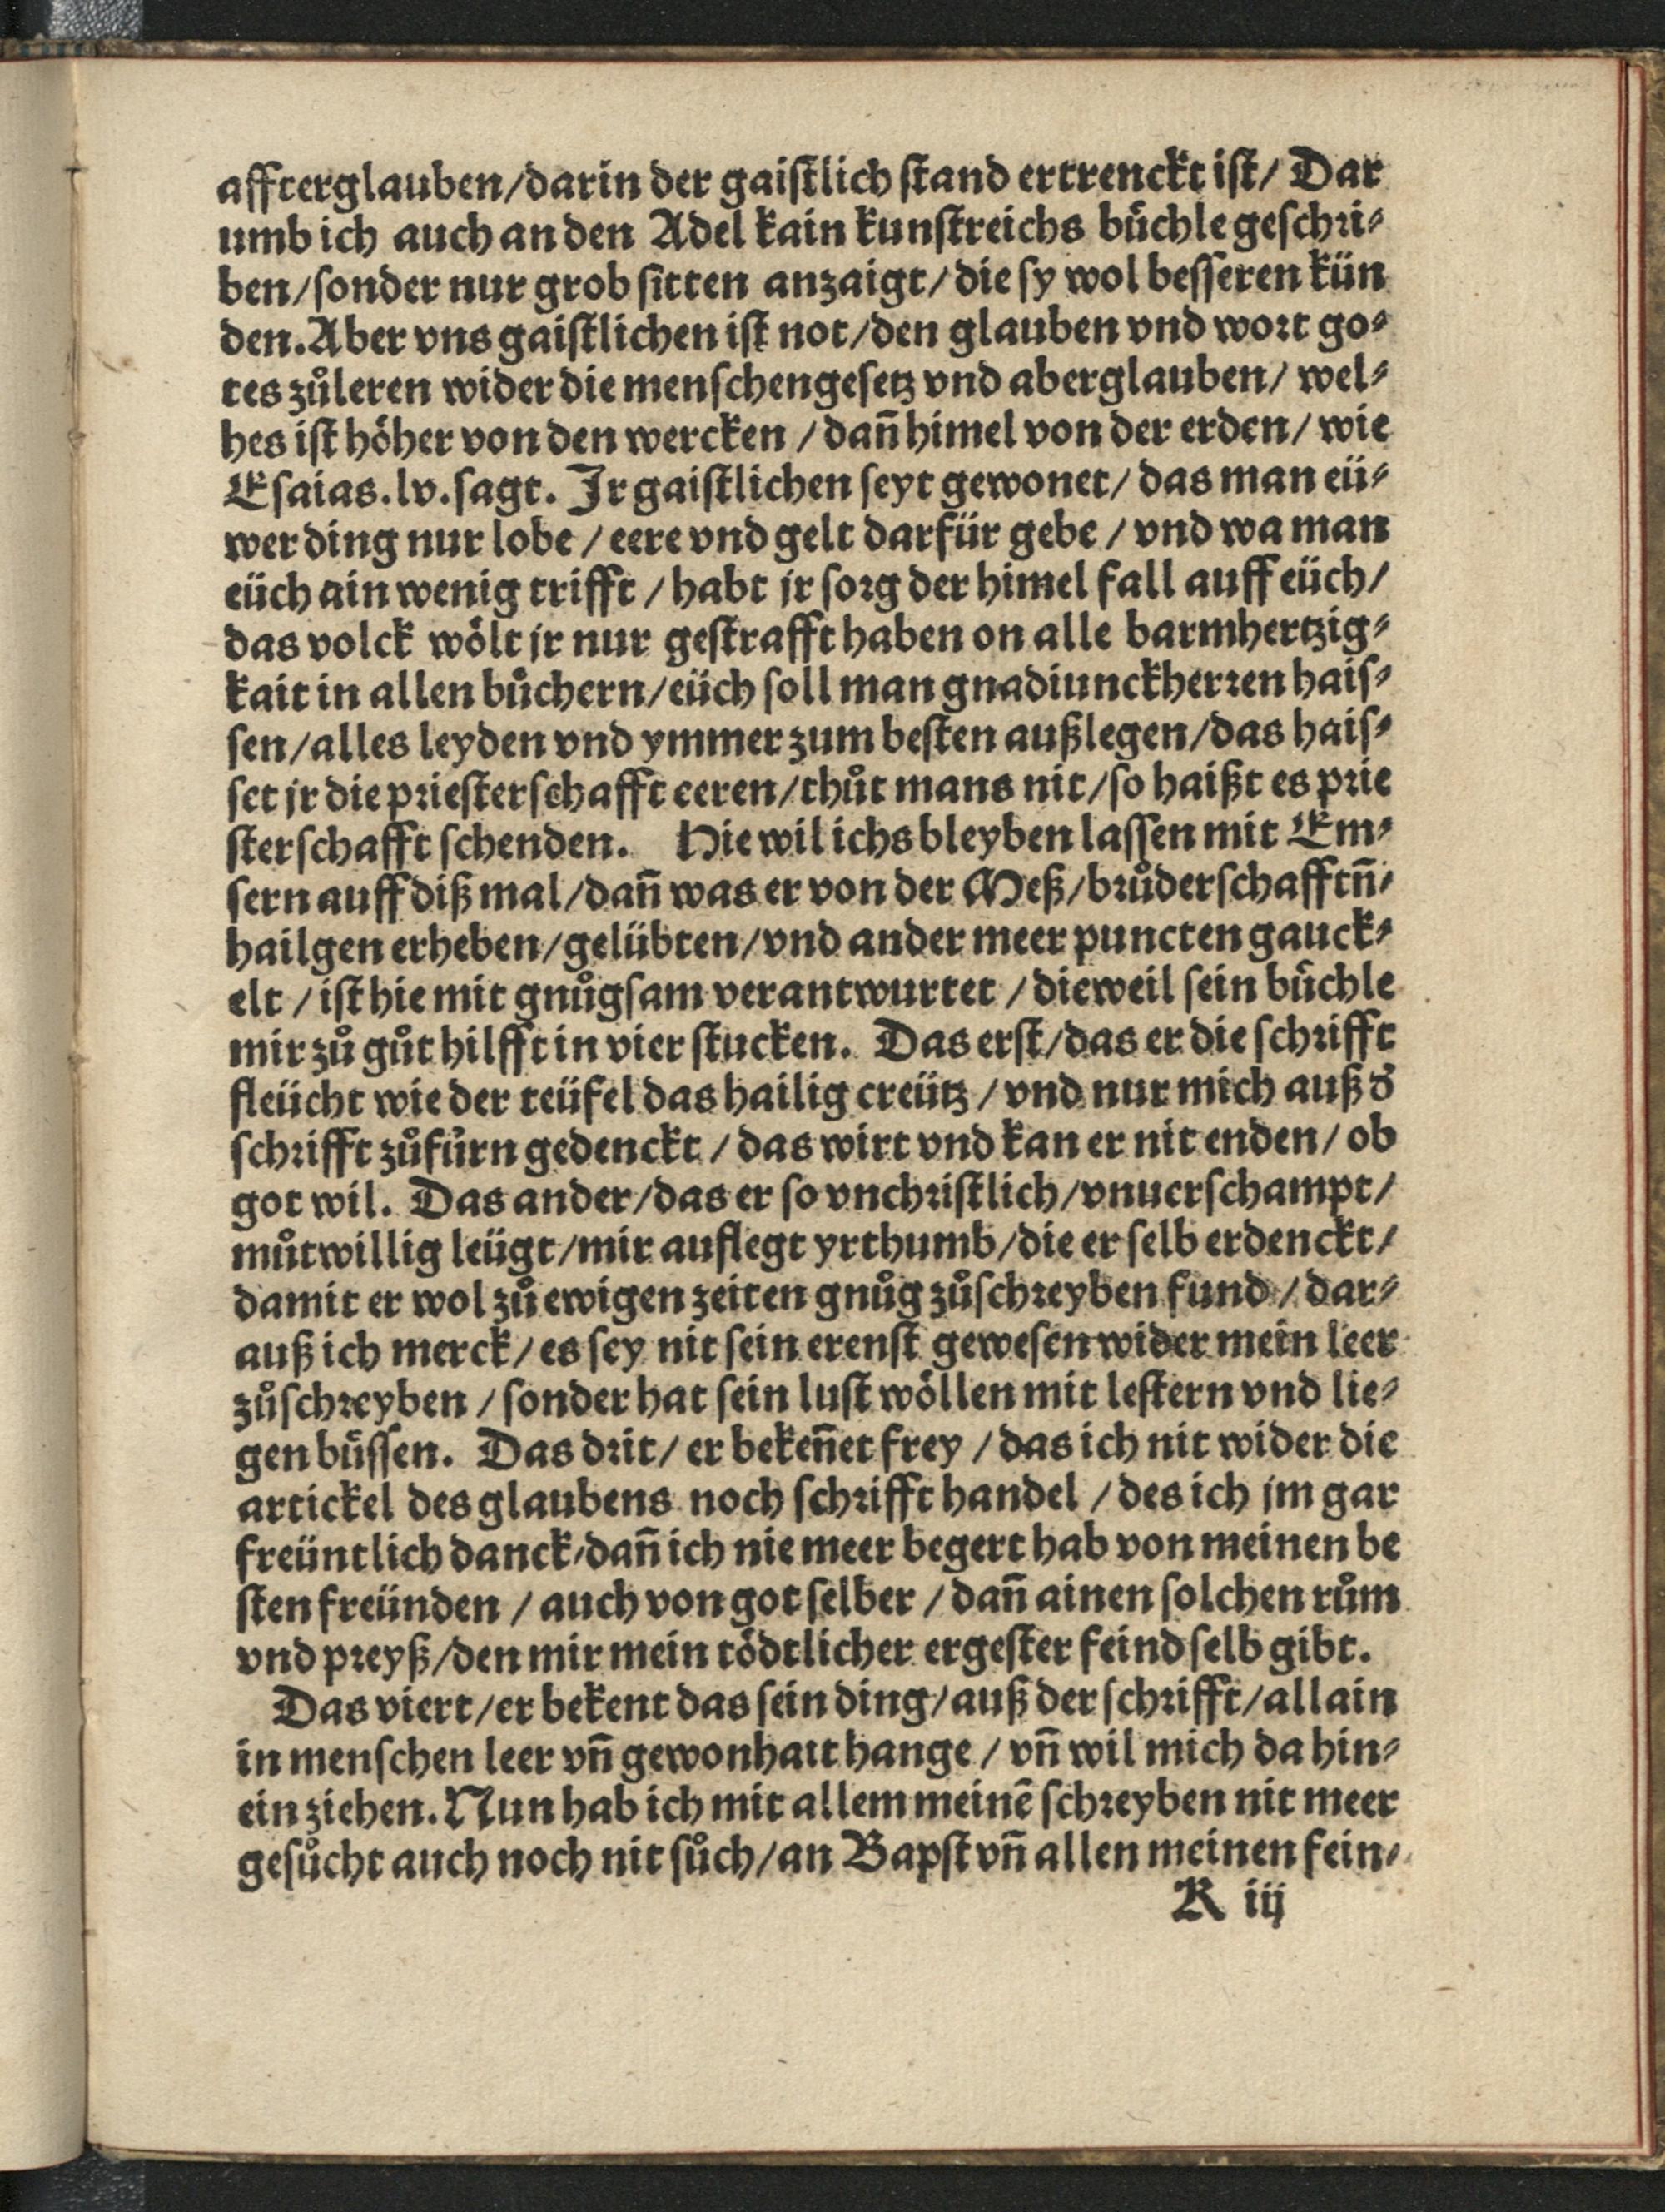 affterglauben/darin der gaiſtlich ſtand ertrenckt iſt/ Dar
umb ich auch an den Adel kain kunſtreichs bůchle geſchri⸗
ben/ſonder nur grob ſitten anzaigt/die ſy wol beſſeren kün
den. Aber vns gaiſtlichen iſt not/den glauben vnd wort go⸗
tes zůleren wider die menſchengeſetz vnd aberglauben/ wel⸗
hes iſt hoͤher von den wercken /dañ himel von der erden/ wie
Eſaias.lv.ſagt. Jr gaiſtlichen ſeyt gewonet/ das man eü⸗
wer ding nur lobe /eere vnd gelt darfür gebe /vnd wa man
eüch ain wenig trifft /habt jr ſorg der himel fall auff eüch/
das volck woͤlt jr nur geſtrafft haben on alle barmhertzig⸗
kait in allen bůchern/eüch ſoll man gnadiunckherren haiſ⸗
ſen/alles leyden vnd ymmer zum beſten außlegen/das haiſ⸗
ſet jr die prieſterſchafft eeren/thůt mans nit/ſo haißt es prie
ſterſchafft ſchenden. Hie wil ichs bleyben laſſen mit Em⸗
ſern auff diß mal/dañ was er von der Meß/brůderſchafftñ/
hailgen erheben/gelübten/vnd ander meer puncten gauck⸗
elt /iſt hie mit gnůgſam verantwurtet /dieweil ſein bůchle
mir zů gůt hilfft in vier ſtucken. Das erſt/das er die ſchrifft
fleücht wie der teüfel das hailig creütz /vnd nur mich auß ď
ſchrifft zůfůrn gedenckt /das wirt vnd kan er nit enden/ ob
got wil. Das ander/das er ſo vnchriſtlich/vnuerſchampt/
můtwillig leügt/mir auflegt yrthumb/die er ſelb erdenckt/
damit er wol zů ewigen zeiten gnůg zůſchreyben fund /dar⸗
auß ich merck/es ſey nit ſein erenſt geweſen wider mein leer
zůſchreyben /ſonder hat ſein luſt woͤllen mit leſtern vnd lie⸗
gen bůſſen. Das drit/ er bekeñet frey /das ich nit wider die
artickel des glaubens noch ſchrifft handel /des ich jm gar
freüntlich danck/dañ ich nie meer begert hab von meinen be
ſten freünden /auch von got ſelber /dañ ainen ſolchen rům
vnd preyß/den mir mein toͤdtlicher ergeſter feind ſelb gibt.
Das viert/er bekent das ſein ding/auß der ſchrifft/allain
in menſchen leer vñ gewonhait hange /vñ wil mich da hin⸗
ein ziehen. Nun hab ich mit allem meinē ſchreyben nit meer
geſůcht auch noch nit ſůch/an Bapſt vñ allen meinen fein⸗
R iij